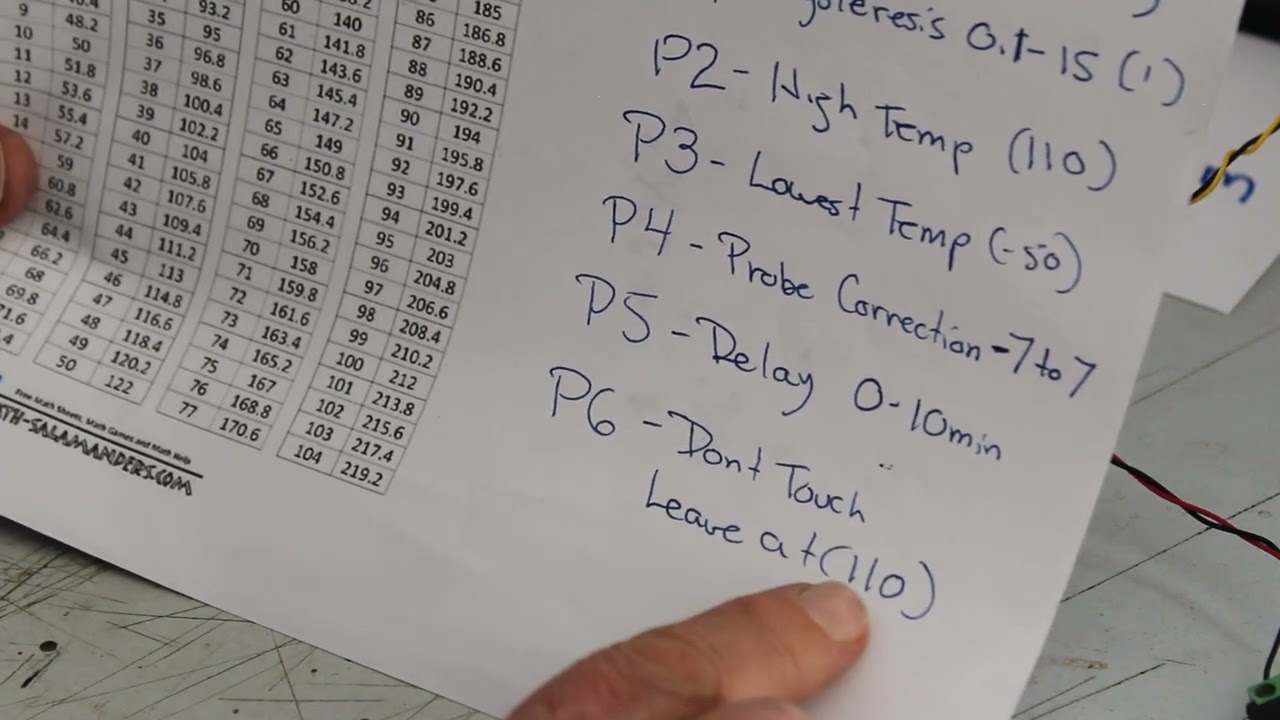 9 48.2
10 50
11 51.8
12 53.6
13 55.4
14 57.2
59
60.8
62.6
64.4
66.2
68
69.8
71.6
93.2
35 95
36 96.8
37 98.6
38 100.4
39 102.2
40 104
41 105.8
42 107.6
43 109.4
44 111.2
45 113
46 114.8
47 116.6
48 118.4
49 120.2
50 122
60 140
61 141.8
62 143.6
63 145.4
64 147.2
65 149
66 150.8
67 152.6
68 154.4
69 156.2
70 158
71 159.8
72 161.6
73 163.4
74 165.2
75 167
76 168.8
77 170.6
185
86 186.8
87 188.6
88 190.4
89 192.2
90 194
91 195.8
92 197.6
93 199.4
94 201.2
95 203
96 204.8
97 206.6
98 208.4
99 210.2
100 212
101 213.8
102 215.6
103 217.4
104 219.2
Free Math Sheets, Math Games and Math Help
ATH-SALAMANDERS.COM
steresis 0.1-15 (1)
P2 - High Temp (110)
P3 - Lowest Temp (-50)
P4 - Probe Correction -7 to 7
P5 - Delay 0-10min
P6 - Dont Touch
Leave at (110)